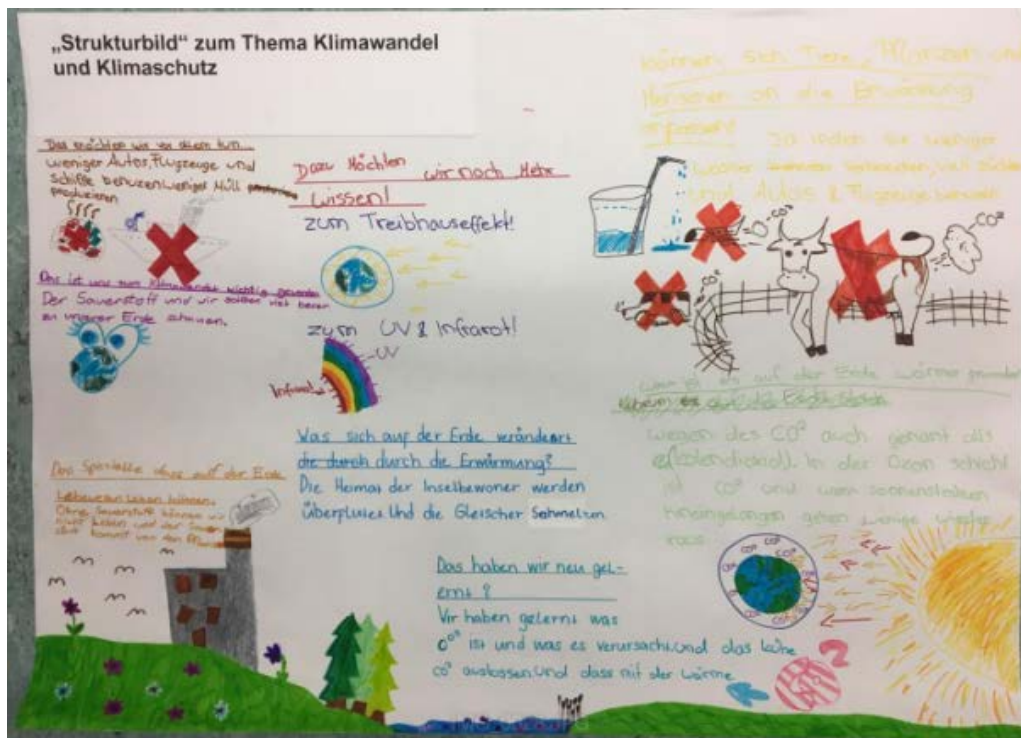 „Strukturbild“ zum Thema Klimawandel
und Klimaschutz
Das möchten wir vor allem tun...
weniger Autos, Flugzeuge und
Schiffe benuzen weniger Müll
produzieren
Das ist uns zum Klimawandel wichtig geworden
Der Sauerstoff und wir sollten viel besser
zu unserer Erde schauen.
Das Spezielle dass auf der Erde
Lebewesen Leben können.
Ohne Sauerstoff können wir
nicht Leben und der
kommt von den
Dazu Möchten wir noch Mehr
wissen!
zum Treibhauseffekt!
zum UV & Infrarot!
UV
Infrarot
Was sich auf der Erde verändert
die durch durch die Erwärmung?
Die Heimat der Inselbewoner werden
überflutet Und die Gleischer Schmelzen
Das haben wir neu gel-
ernt?
Wir haben gelernt was
CO² ist und was es verursacht und das kühe
CO² auslassen Und dass mit der wärme
können sich Tiere, Pflanzen und
Menschen an die Erwärmung
anpassen? Ja indem sie weniger
und Autos & Flugzeuge
CO²
CO²
CO²
warum ist es auf der Erde wärmer geworden
wegen des CO² auch genant als
In der Ozon schicht
ist CO² und wenn sonnenstrahlen
hineingelangen gehen wenige wieder
raus
CO² CO² CO²